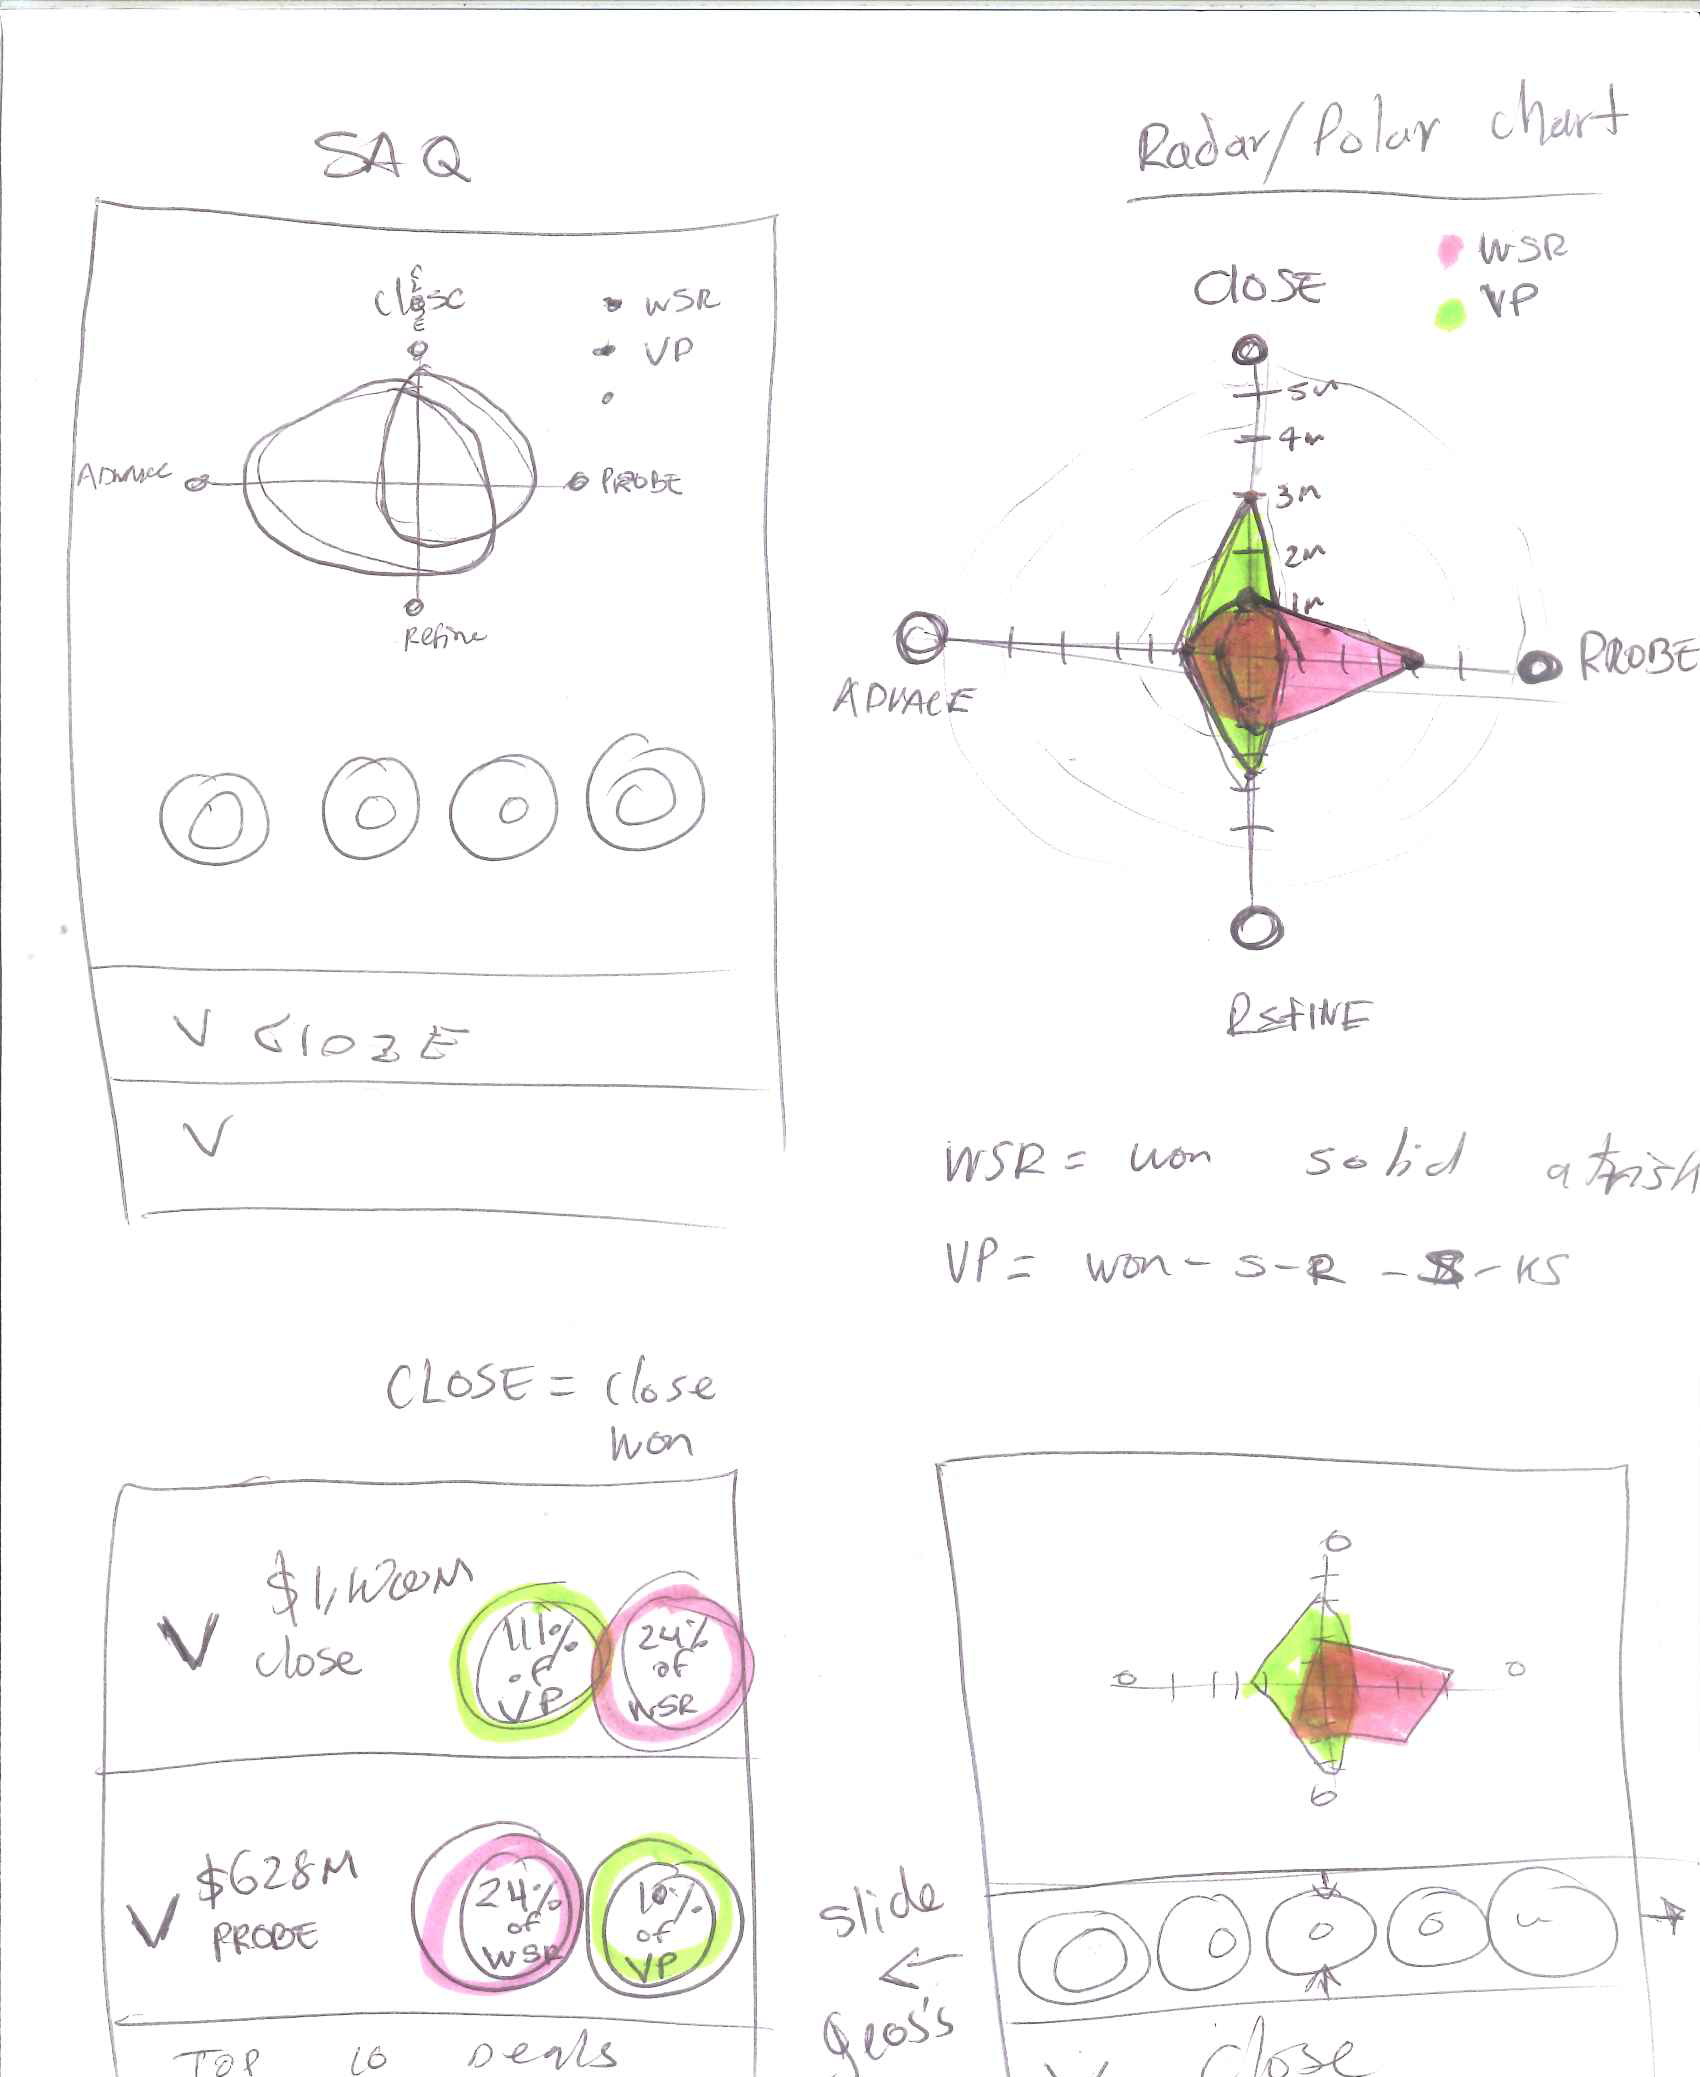 SAQ
Close
WSR
VP
PROBE
Refine
V CLOZE
V
Radar/Polar chart
WSR
VP
ClOSE
5m
4m
3m
2m
1m
PROBE
ADVACE
REFINE
WSR = won solid atrish
VP = won - S - R - - KS
CLOSE = close
won
V
close
111%
of
VP
24%
of
WSR
V $628M
PROBE
24%
of
WSR
10%
of
VP
TOP 10 Deals
slide
Geos's
V close